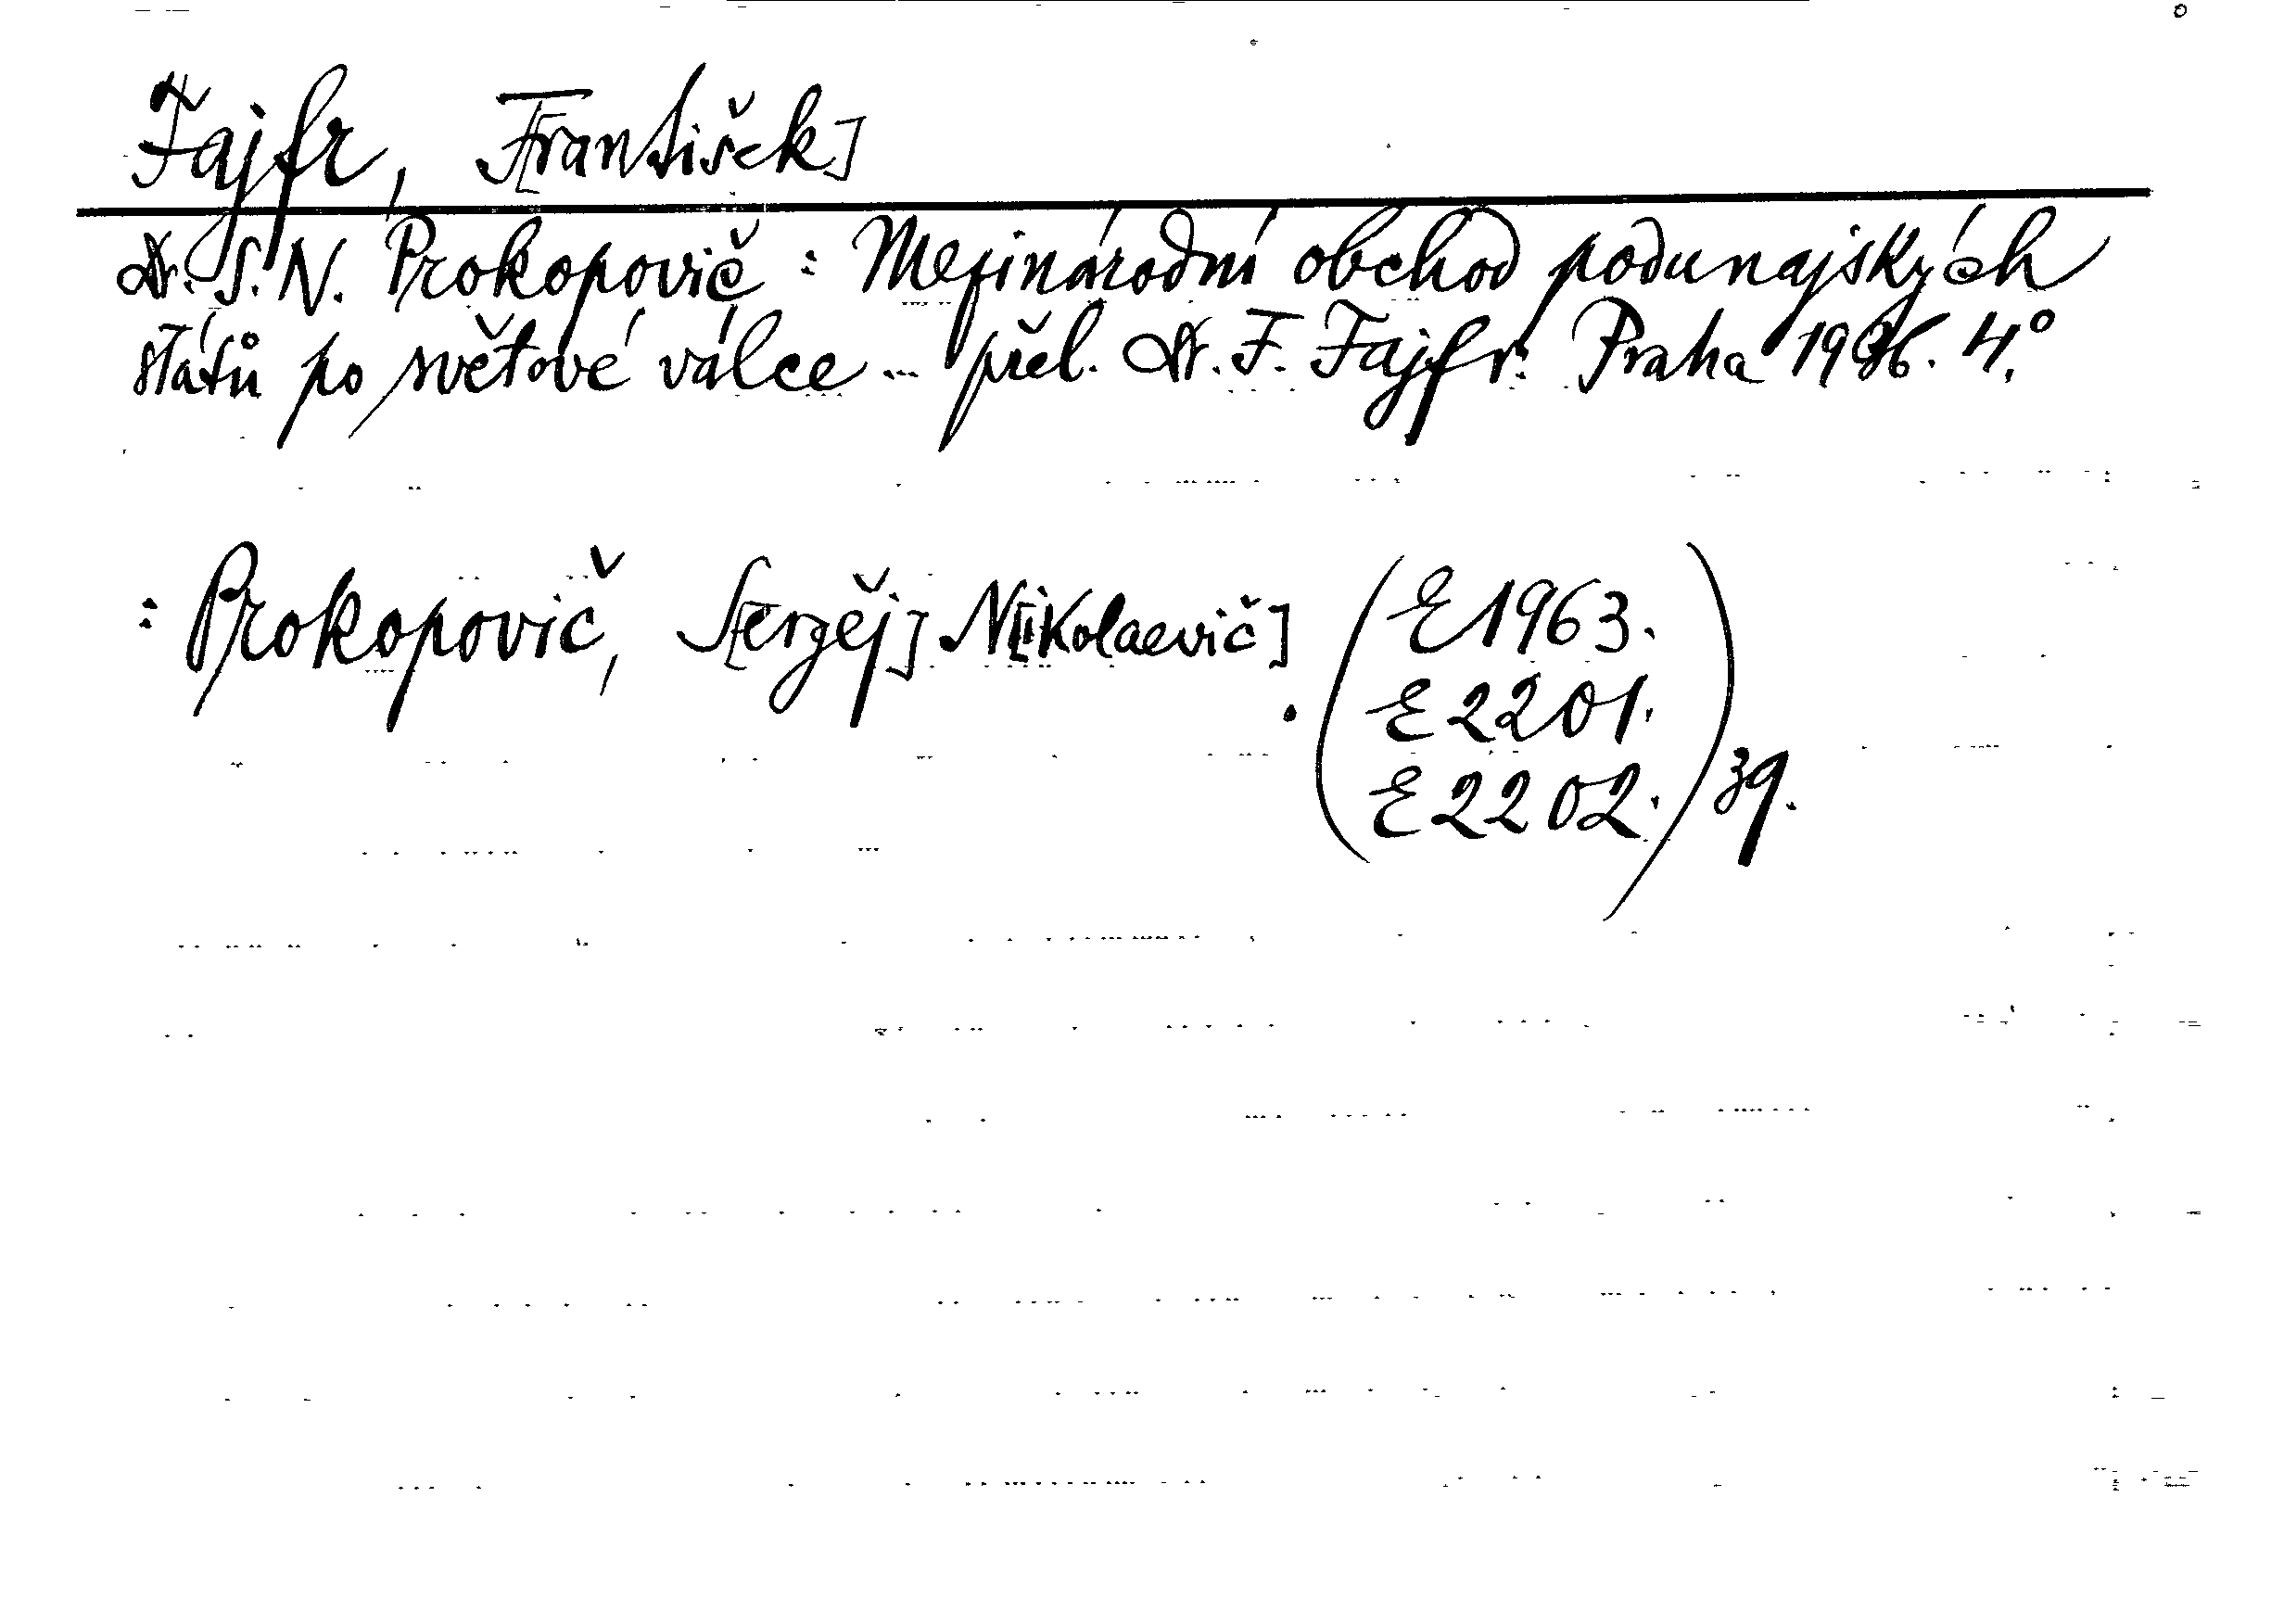 Fajfr, F[rantišek]
Dr. S. N. Prokopovič : Mezinárodní obchod podunajských
států po světové válce ... přel. Dr. F. Fajfr. Praha 1936. 4.°
: Prokopovič, S[ergěj] N[ikolaevič]
(E 1963.
E 2201.
E 2202.) 39.